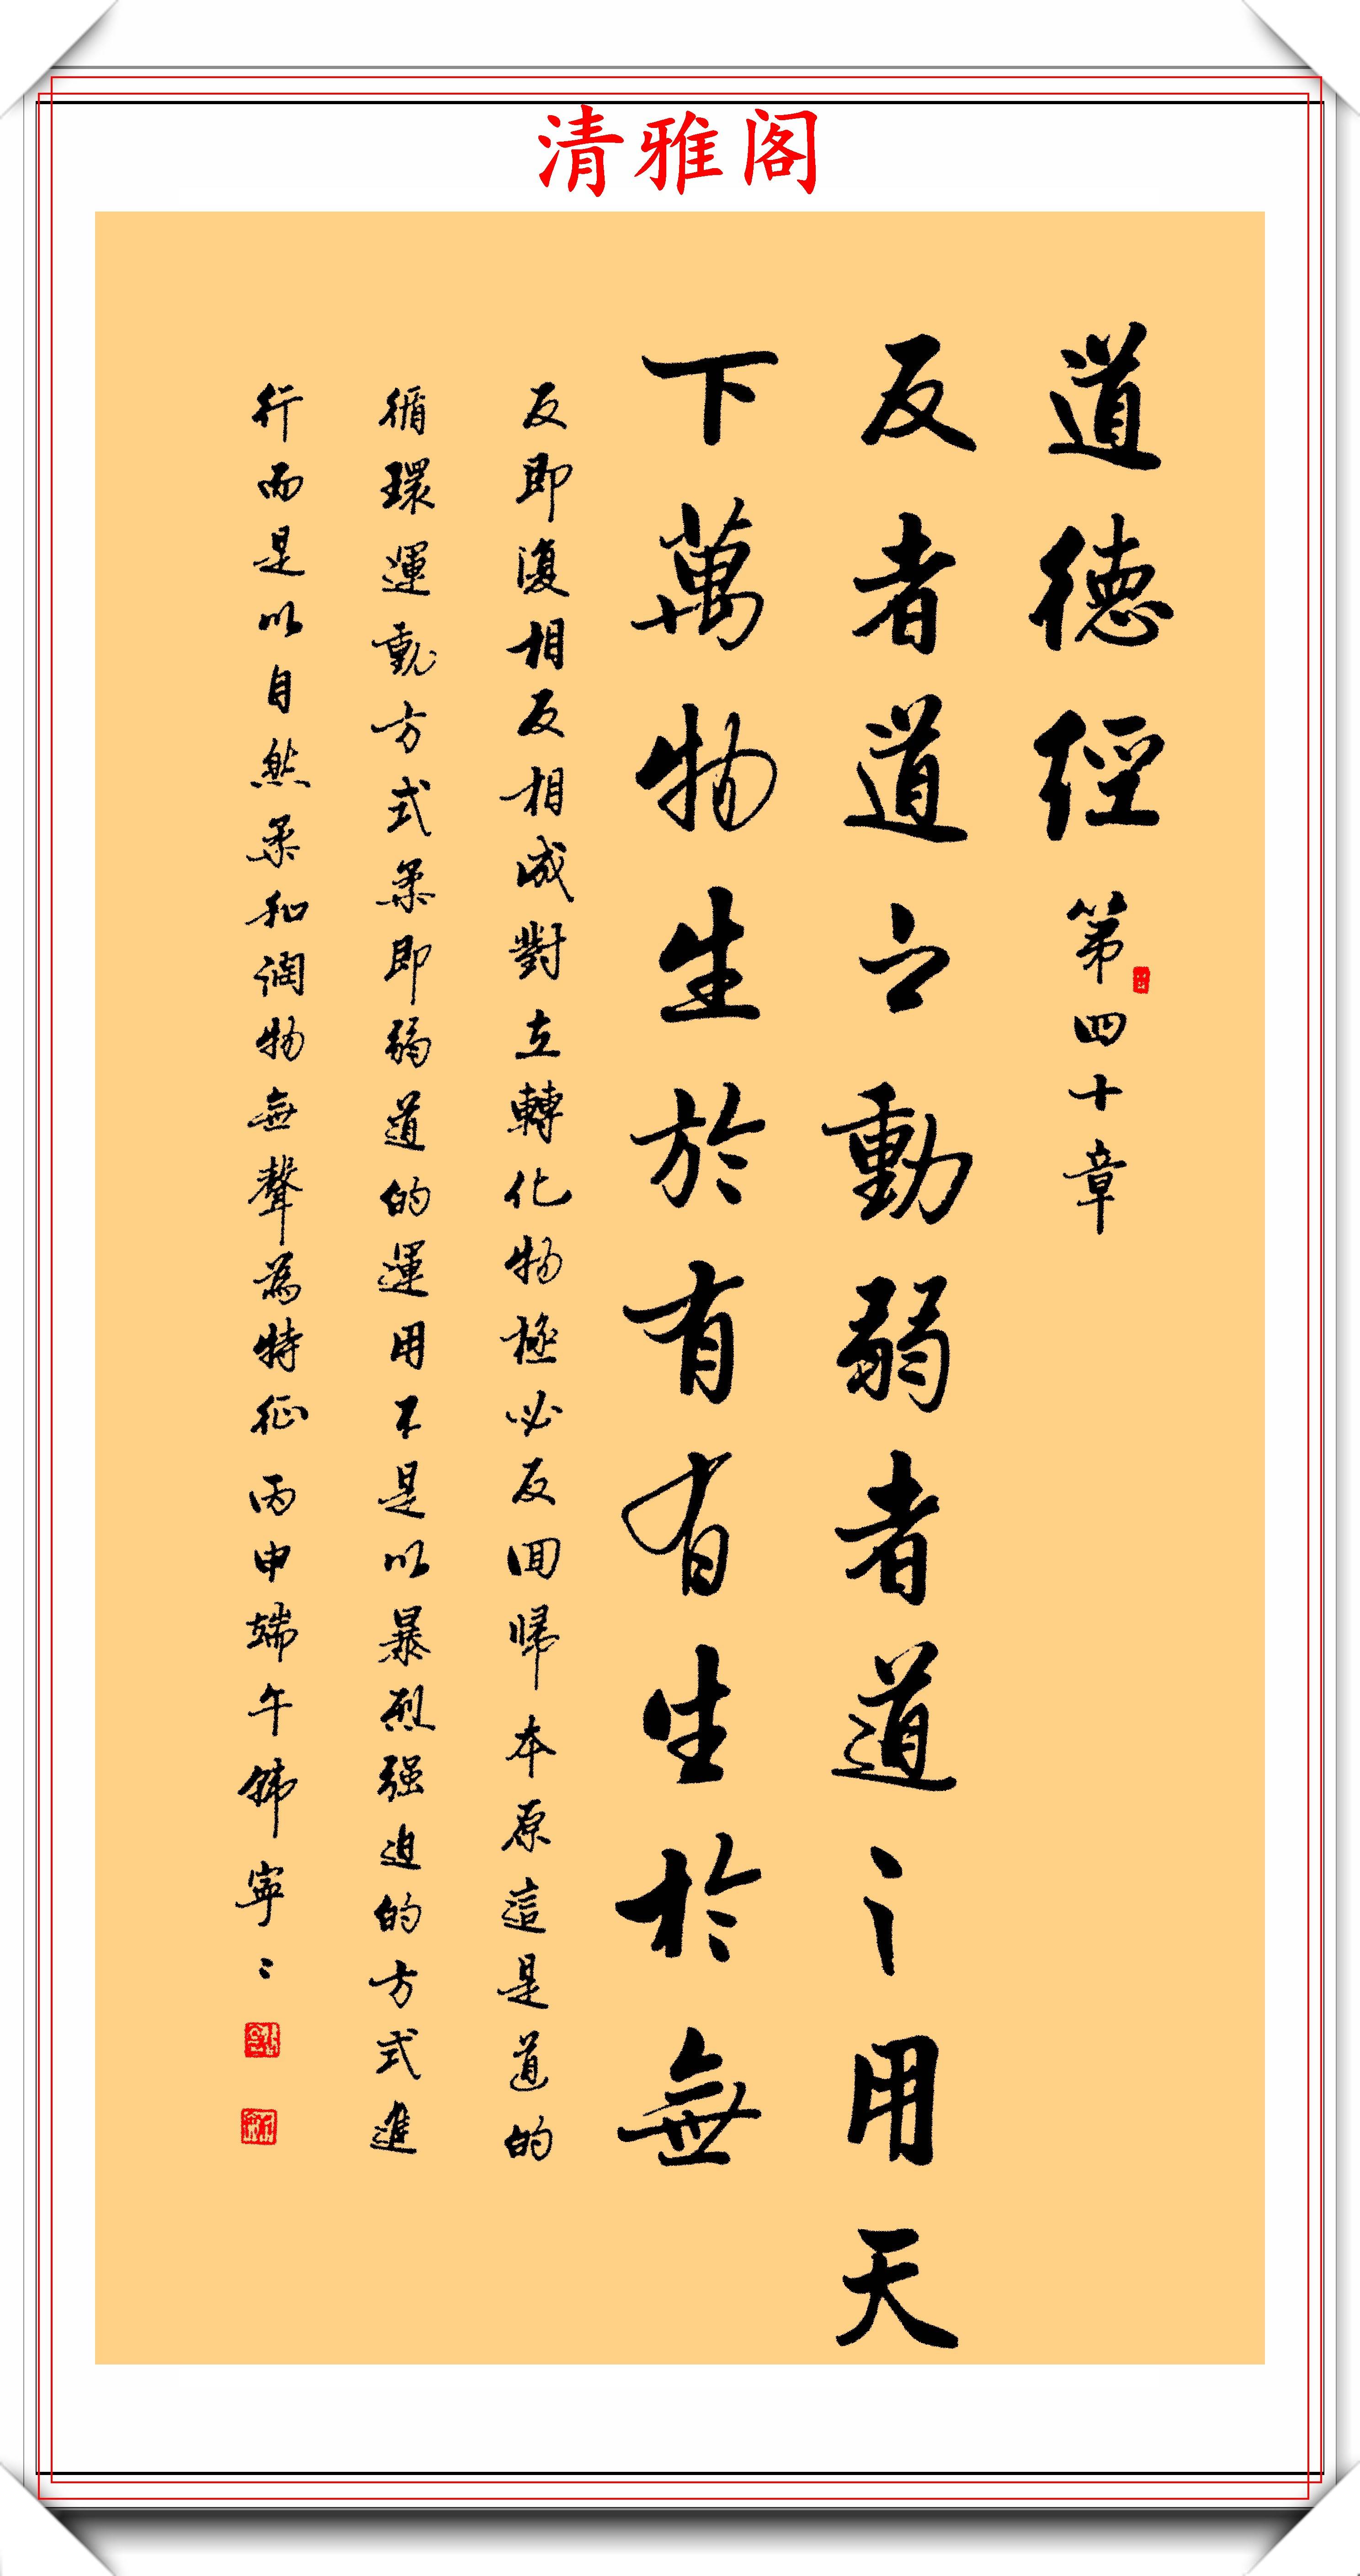 清雅阁
道德經 第四十章
反者道之動弱者道之用天
下萬物生於有有生於無
反即復相反相成對立轉化物極必反回歸本原這是道的
循環運動方式柔即弱道的運用不是以暴烈强迫的方式進
行而是以自然柔和潤物無聲為特征 丙申端午韩寧〻